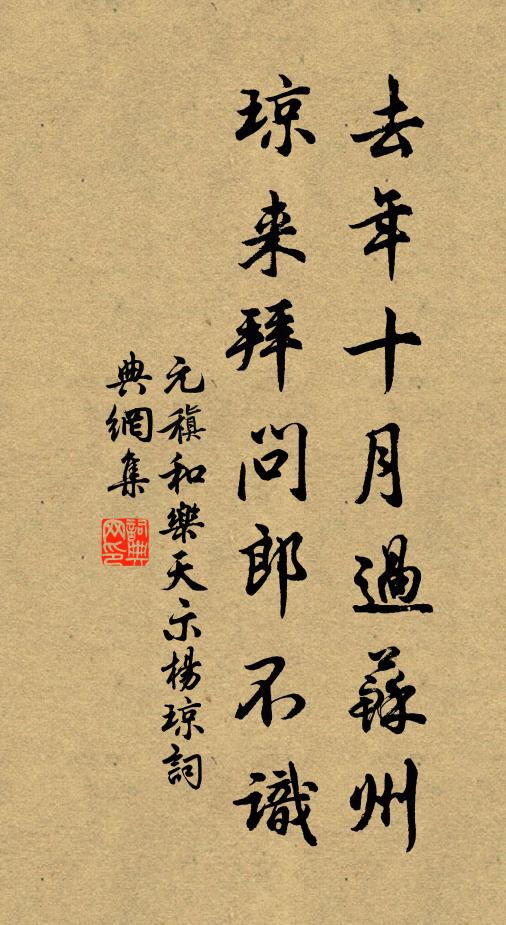 去年十月過蘇州
琼来拜問郎不識
元稹和樂天示楊琼詞
典網集
詞典网印